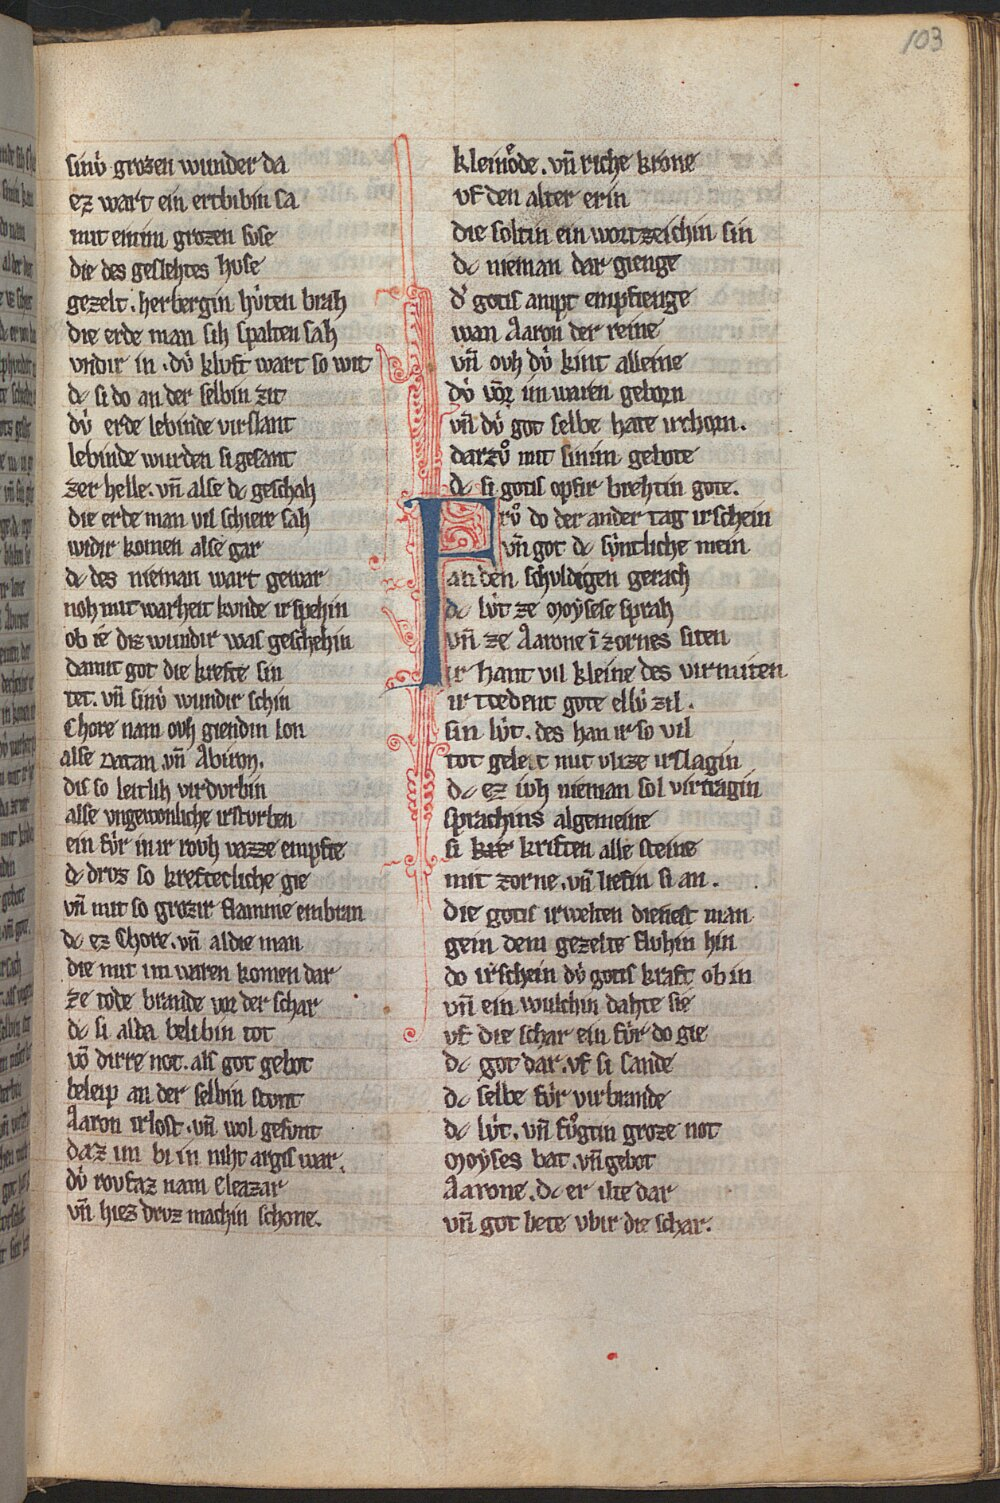 103
sinv̇ grozen wunder da
ez wart ein ertbibin sa
mit einim grozen svse
die des geslehtes huse
gezelt. herbergin hv̇ten brah
die erde man sih spalten sah
vndir in. dv̇ kluft wart so wit
dc si do an der selbin zit
dv̇ erde lebinde virslant
lebinde wurden si gesant
zer helle. vn̄ alse dc geschah
die erde man vil schiere sah
widir komen alse gar
dc des nieman wart gewar
noh mit warheit konde irspehin
ob ie diz wundir was geschehin
damit got die krefte sin
tet. vn̄ sinv̇ wundir schin
Chore nam ovh giendin lon
alse Datan. vn̄ Abiron.
dis so leitlih virdvrbin
alse vngewonliche irsturben
ein fv̇r in ir rovh vazze empfie
dc drvs so kreftecliche gie
vn̄ mit so grozir flamme embran
dc ez Chore. vn̄ al die man
die mit im waren komen dar
ze tode brande vor der schar
dc si alda belibin tot
vō dirre not. als got gebot
beleip an der selbin stvnt
Aaron irlost. vn̄ wol gesvnt
daz im bi in niht argis war.
dv̇ rovfaz nam Eleazar
vn̄ hiez drvz machin schone.
kleinͦode. vn̄ riche krone
vf den alter erin
die soltin ein wortzeichin sin
dc nieman dar gienge
d' gotis ampt empfienge
wan Aaron der reine
vn̄ ovh dv̇ kint alleine
dv̇ vor im waren geborn
vn̄ dv̇ got selbe hate irchorn.
darzvͦ mit sinim gebote
dc si gotis opfir brehtin gote.
Frvͦ do der ander tag irschein
vn̄ got dc sv̇ntliche mein
an den schvldigen gerach
dc lv̇t ze Moẏsese sprah
vn̄ ze Aarone ī zornes siten
ir hant vil kleine des virmiten
ir ttedent gote ellv̇ zil.
sin lv̇t. des han ir so vil
tot geleit mit vlize irslagin
dc ez ivh nieman sol virtragin
sprachins algemeine
si kre kriften alle steine
mit zorne. vn̄ liefin si an.
die gotis irwelten dienest man
gein dem gezelte fluhin hin
do irschein dv̇ gotis kraft ob in
vn̄ ein wulchin dahte sie
vf die schar ein fv̇r do gie
dc got dar vf si sande
dc selbe fv̇r virbrande
dc lv̇t. vn̄ fvͦgtin groze not
Moẏses bat. vn̄ gebot
Aarone. dc er ilte dar
vn̄ got bete vbir die schar.